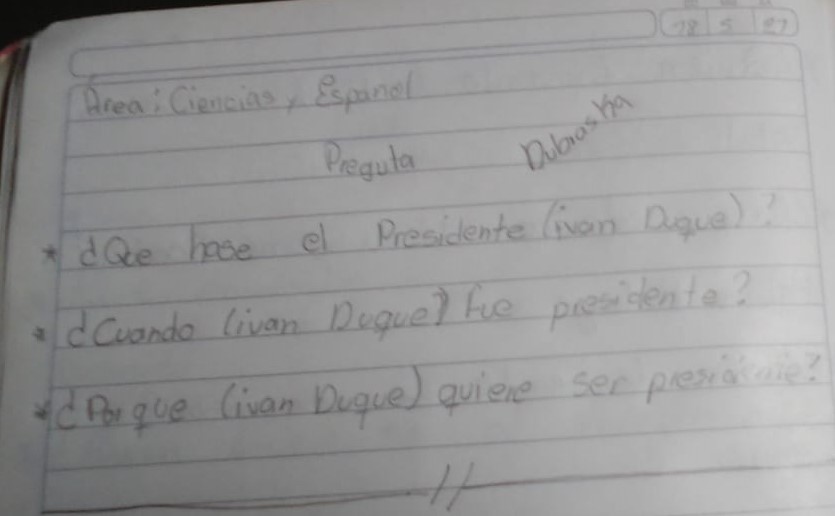 18 5 21
Area: Ciencias y Español
Preguta
Dubraska
* ¿Que hase el Presidente (ivan Duque)?
* ¿Cuando (ivan Duque) fue presidente?
* ¿Por que (ivan Duque) quiere ser presidente?